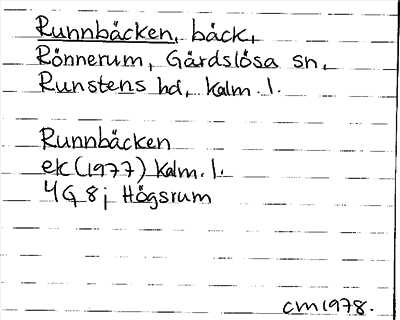 Runnbäcken, bäck,
Rönnerum, Gärdslösa sn,
Runstens hd, Kalm. l.
Runnbäcken
ek (1977) Kalm. l.
4G 8j Högsrum
CM 1978.